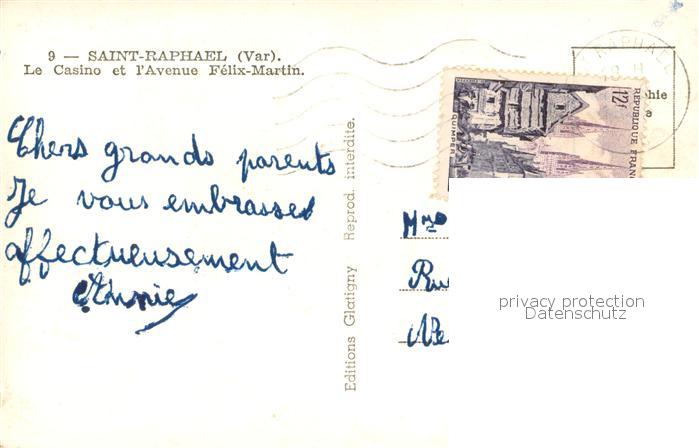 9 — SAINT-RAPHAEL (Var).
Le Casino et l'Avenue Félix-Martin.
Chers grands parents
Je vous embrasses
affectueusement
Annie
Editions Glatigny Reprod. interdite.
RAPHAEL
12f
QUIMPER
REPUBLIQUE FRAN
Mme
Ru
privacy protection
Datenschutz